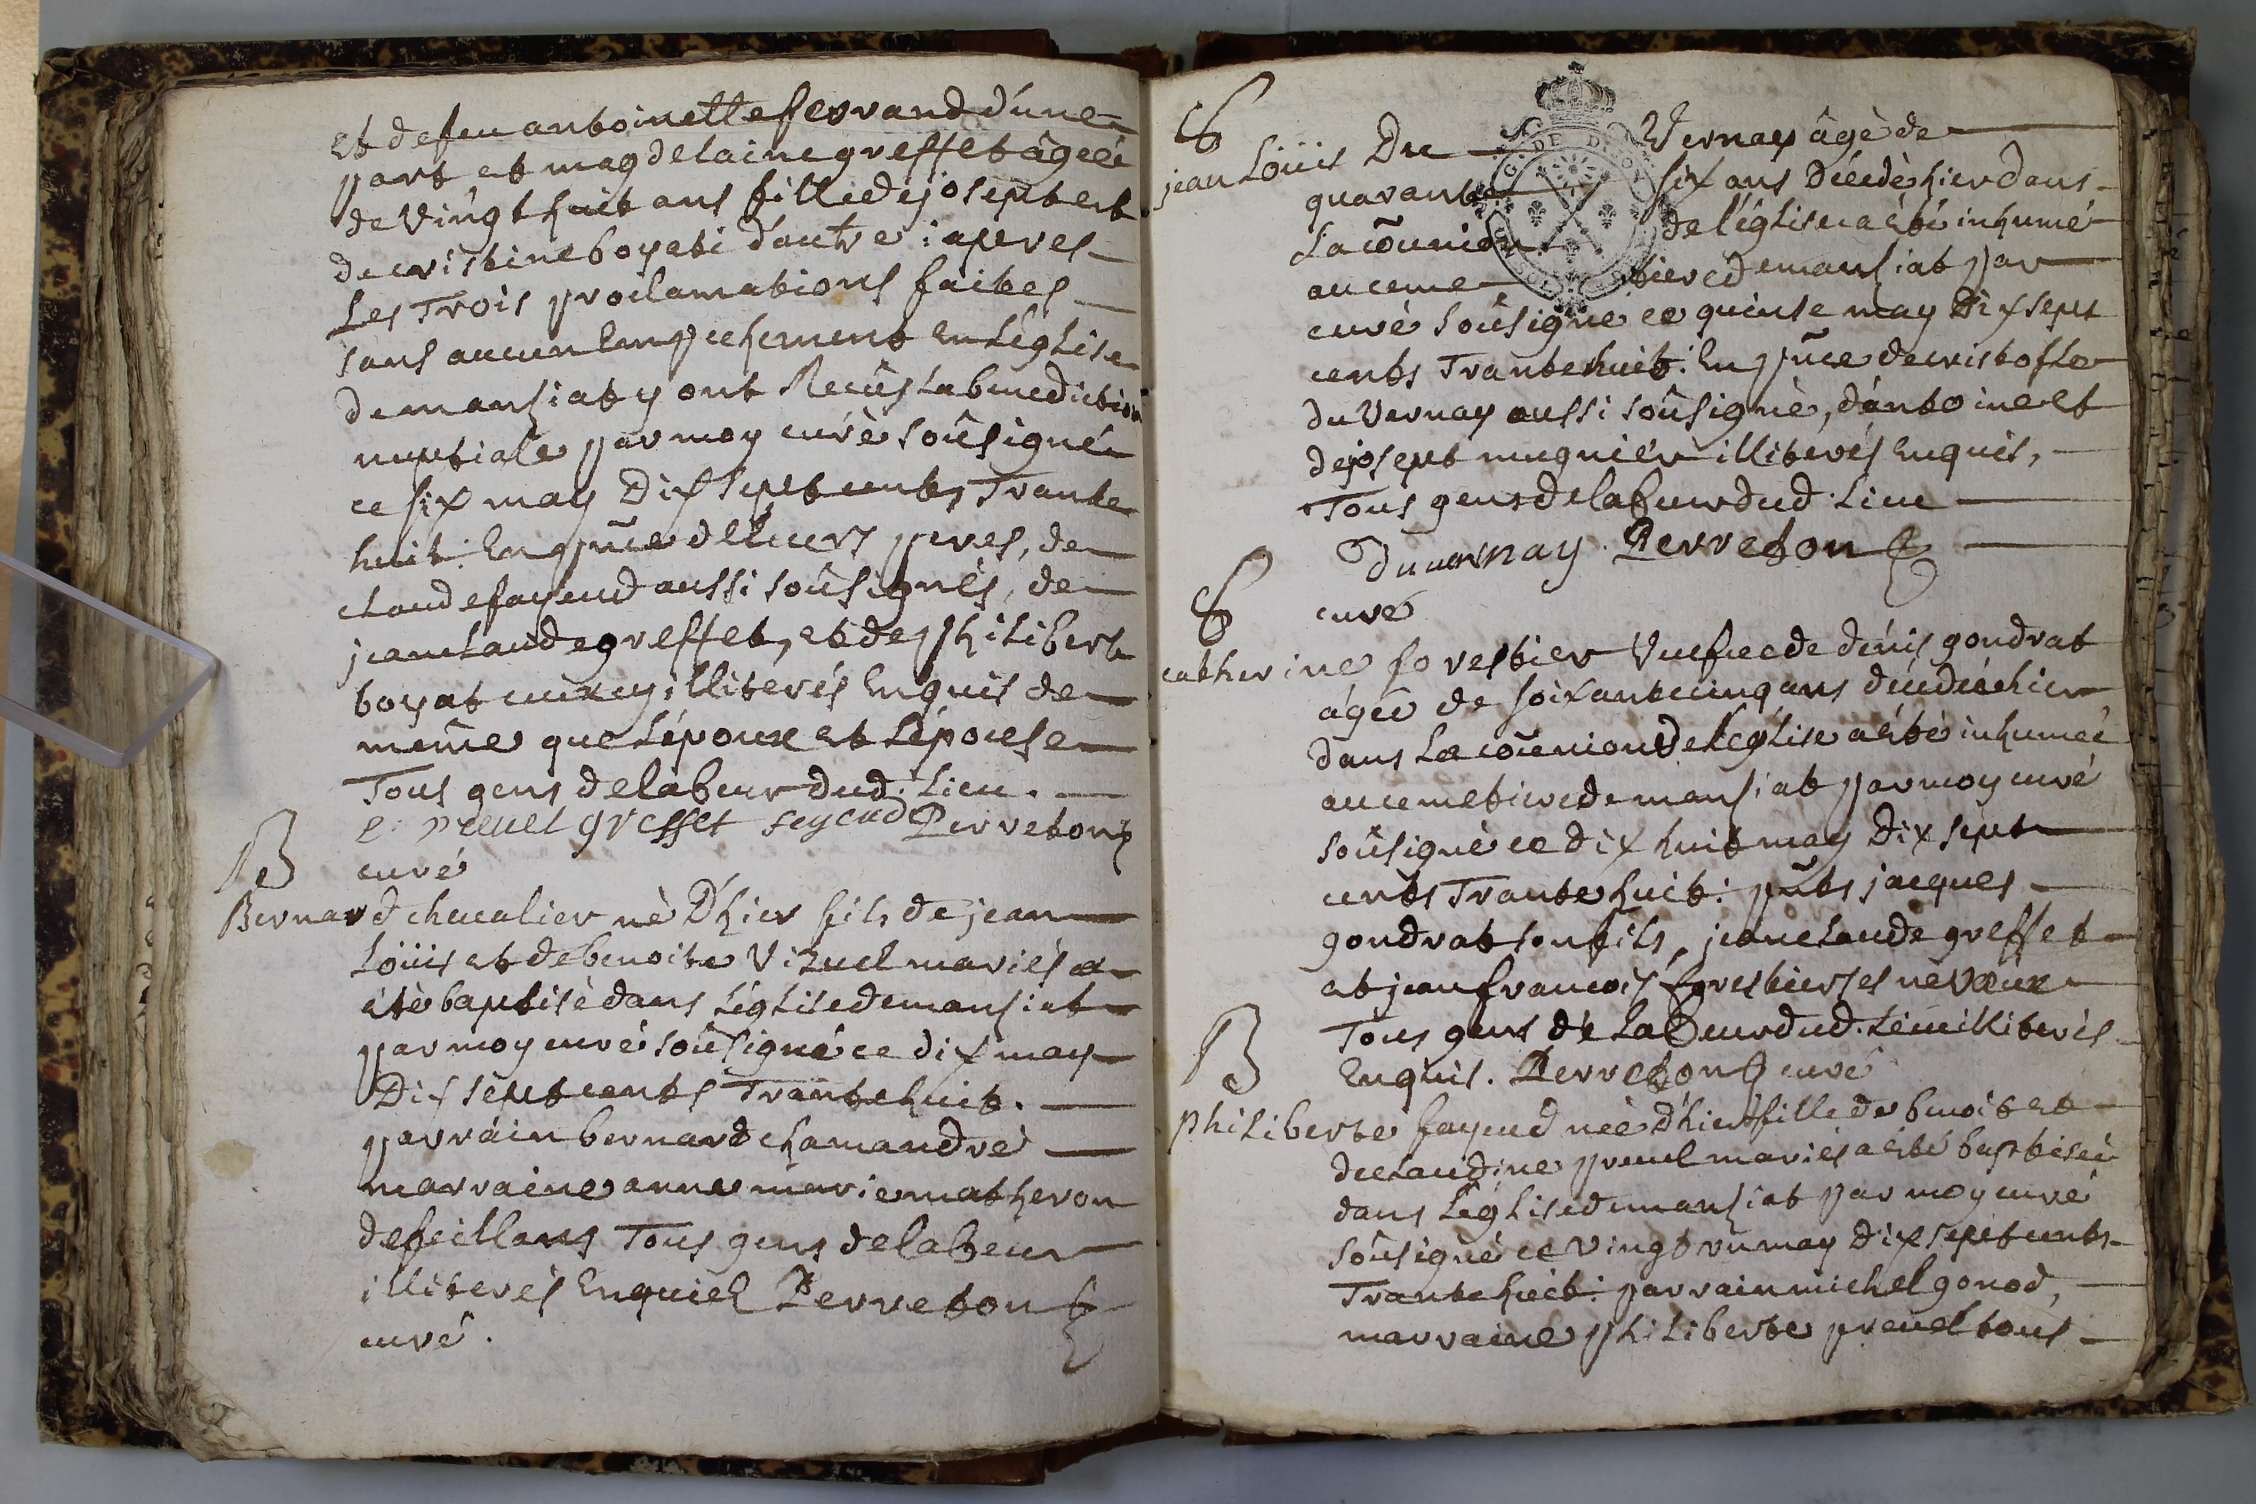 et defeu antoinette ferrand d'une
part et magdelaine greffet âgeé
de vingt huit ans fille de joseph et
de cristine boyati d'autre : apres
Les Trois proclamations faites
sans aucun Empechement En L'église
de mansiat y ont Recûs La benediction
nuptiale par moy curé soûsigné
ce six may Dix sept cents Trante
huit : En pñce de Leurs peres, de
claude fayeud aussi soûsignés, de
jean claude greffet, et de philibert
boyat ceux cy illiterés Enquis de
même que L'époux et L'épouse
Tous gens de labeur dud. Lieu.
preuel greffet feyeud Perreton
curé
B
Bernard chevalier né D'hier fils de jean
Loüis et de benoite Vizuel mariés a
été baptisé dans L'église de mansiat
par moy curé soûsigné ce dix may
Dix sept cents Trante huit.
parrain bernard chamandré
marraine anne marie matheron
de feillans Tous gens de labeur
illiterés Enquis Perreton
curé.
jean Loüis Du Vernay âgé de
quarante six ans Décédé hier dans
La cõunion de l'église a été inhumé
au cemetiere de mansiat par
curé soûsigné ce quinse may Dix sept
cents Trante huit : En pñce de cristofle
du Vernay aussi soûsigné, d'antoine et
de joseph mugnier illiterés Enquis,
Tous gens de labeur dud. Lieu
Duvernay. Perreton
curé
catherine forestier Veufue de dénis gondrat
âgée de soixante cinq ans décédée hier
dans La cõunion de L'église a été inhumeé
au cemetiere de mansiat par moy curé
soûsigné ce dix huit may Dix sept
cents Trante huit : pñts jacques
gondrat son fils, jean claude greffet
et jean francois forestier ses neveux
Tous gens de Labeur dud. Lieu illiterés
Enquis. Perreton curé
B
philiberte fayeud née d'hier fille de benoit et
de claudine preuel mariés a été baptiseé
dans L'église de mansiat par moy curé
soûsigné ce vingt vn may Dix sept cents
Trante huit : parrain michel gonod,
marraine philiberte preuel tous